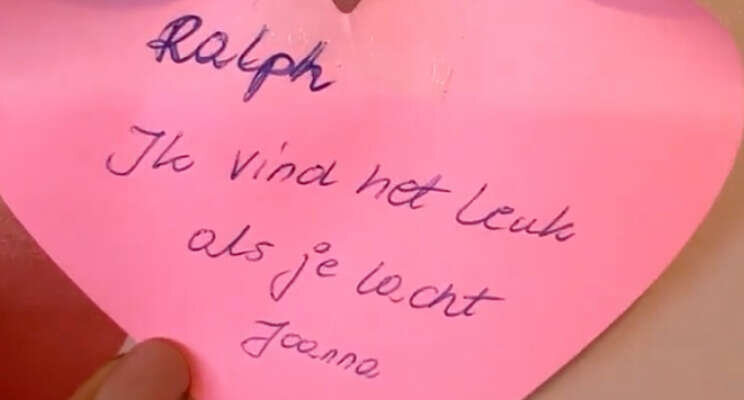 Ralph
Ik vind het leuk
als je lacht
Joanna